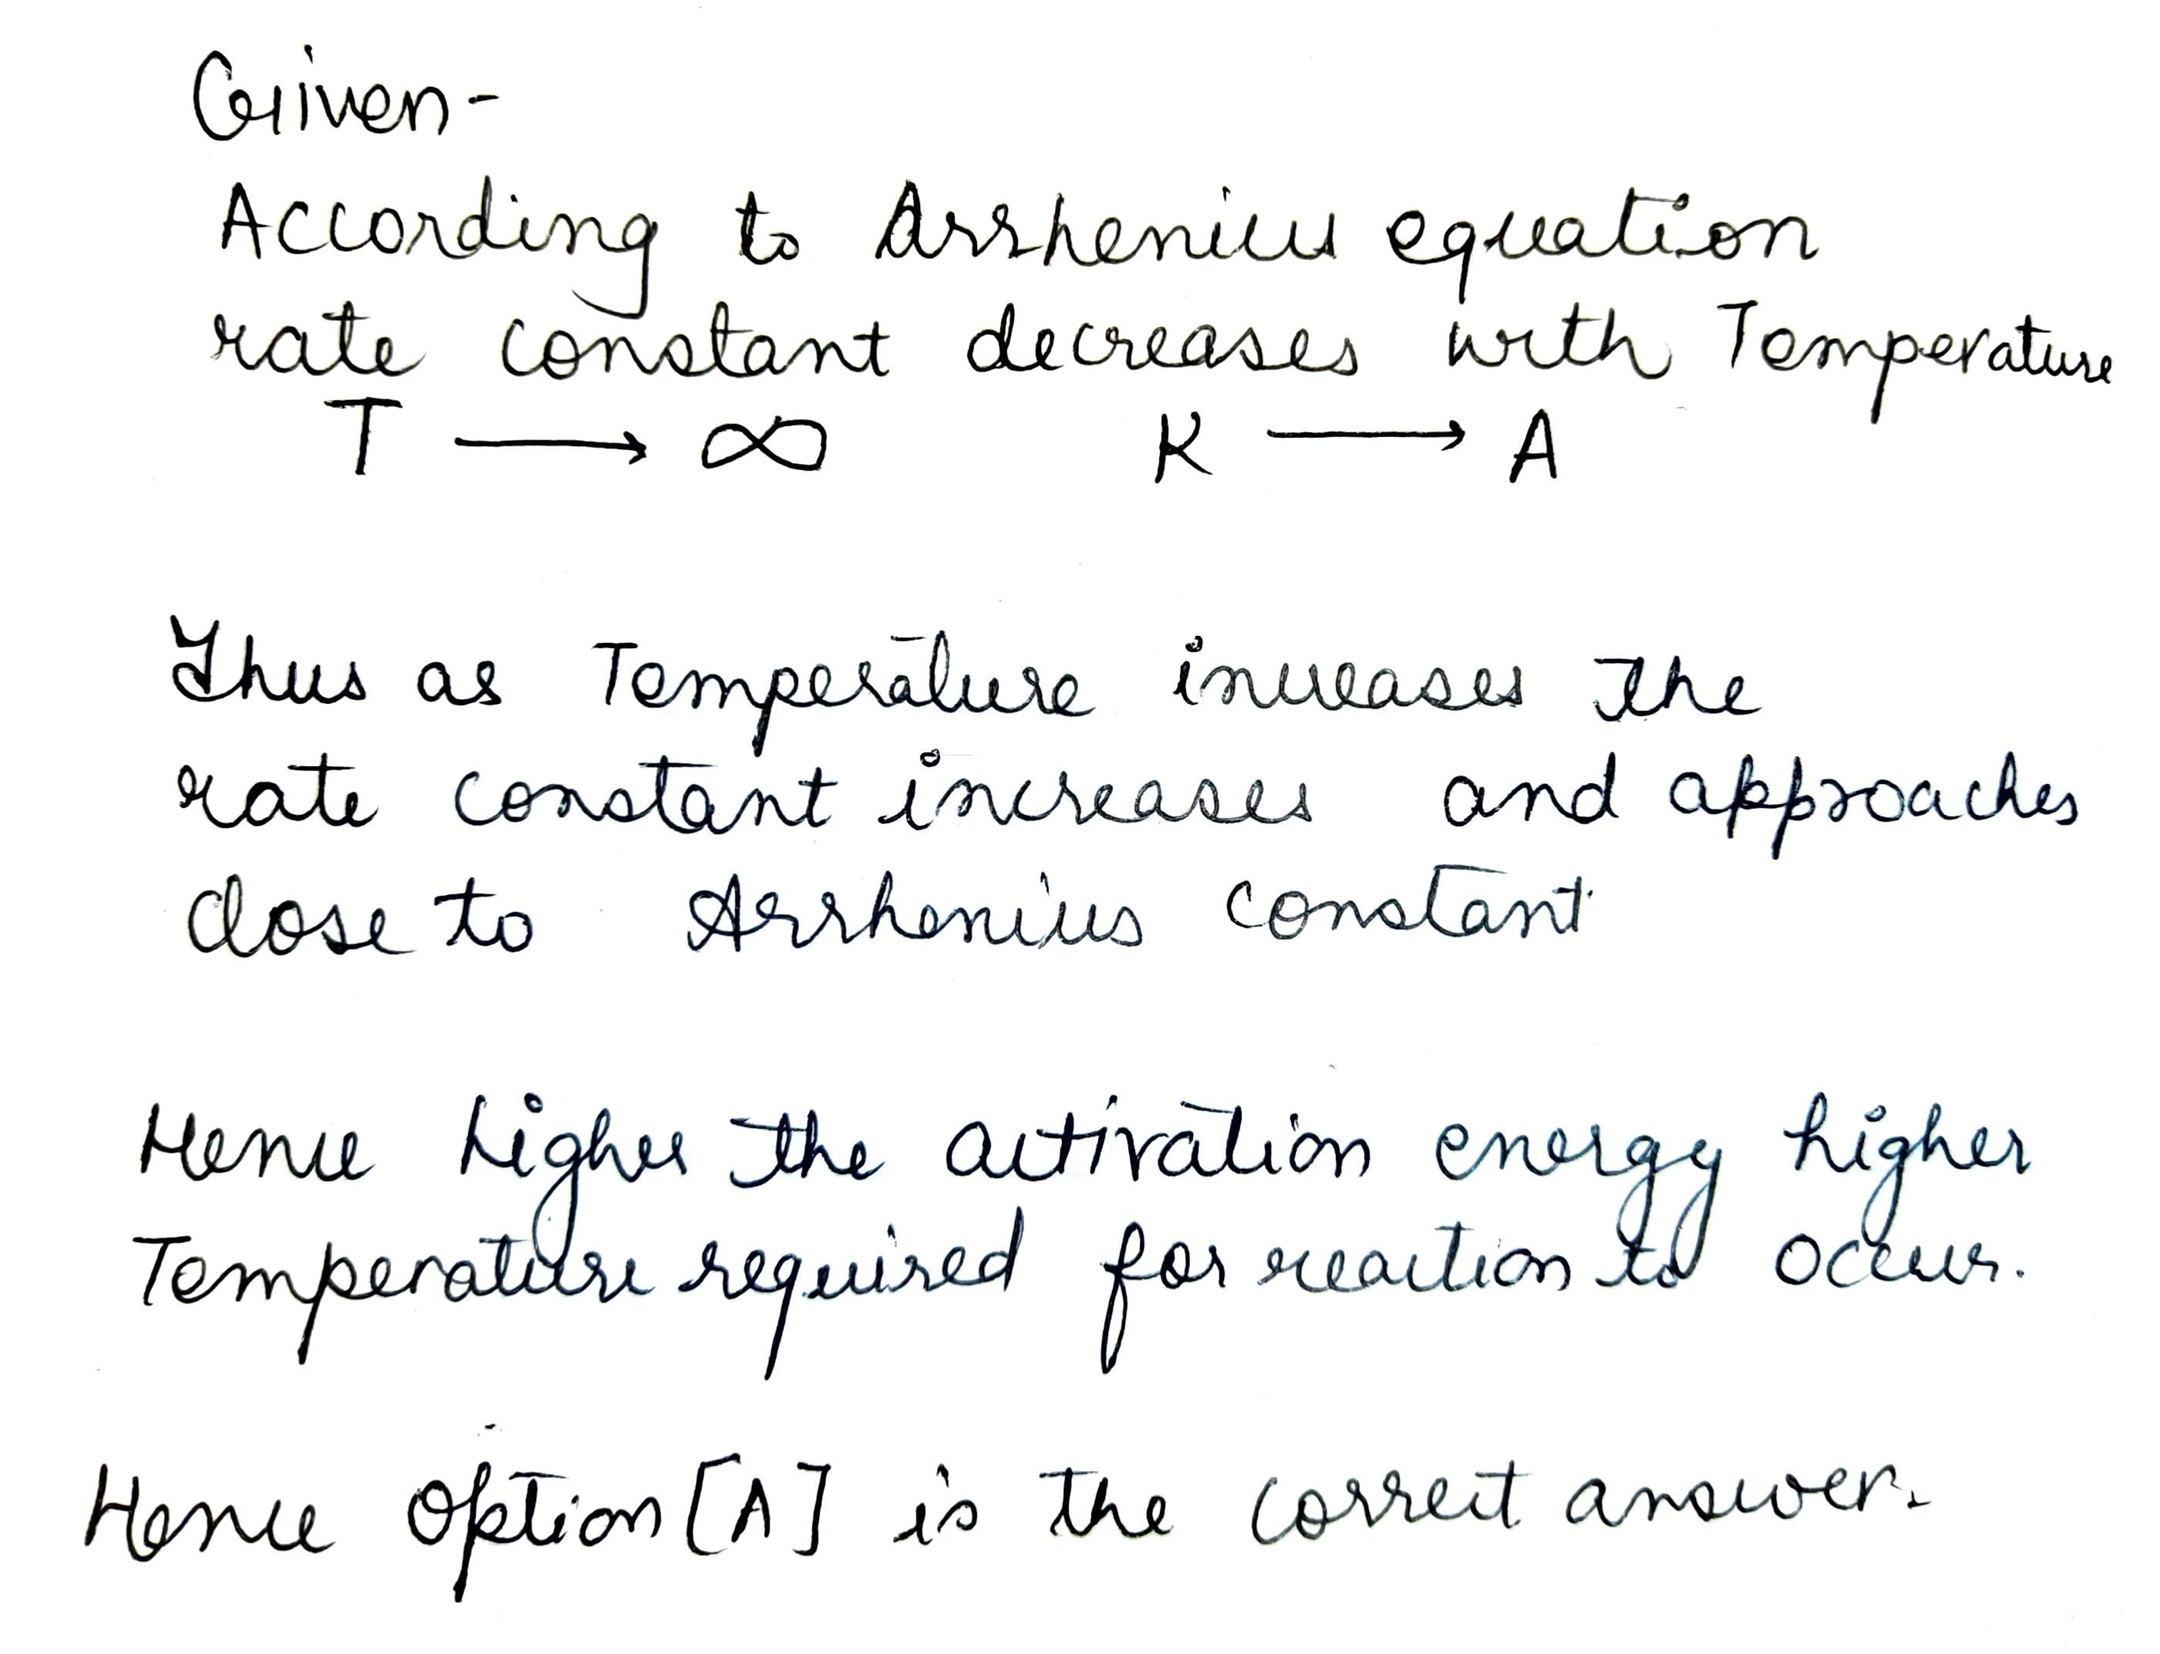 Given-
According to Arrhenius equation
rate constant decreases with Temperature
T ⟶ ∞ K ⟶ A
Thus as Temperature increases the
rate constant increases and approaches
close to Arrhenius constant
Hence higher the activation energy higher
Temperature required for reaction to occur.
Hence option [A] is the correct answer.